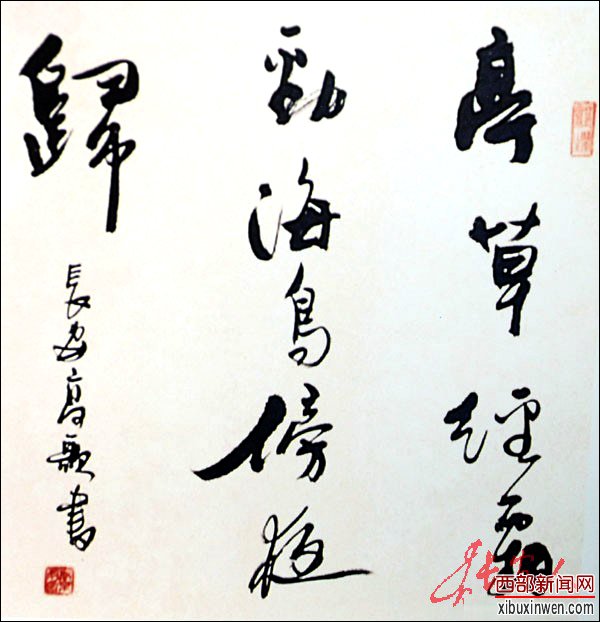 亭草經霜
勁海鳥傍
歸
長安高歌書
西部新闻网
xibuxinwen.com